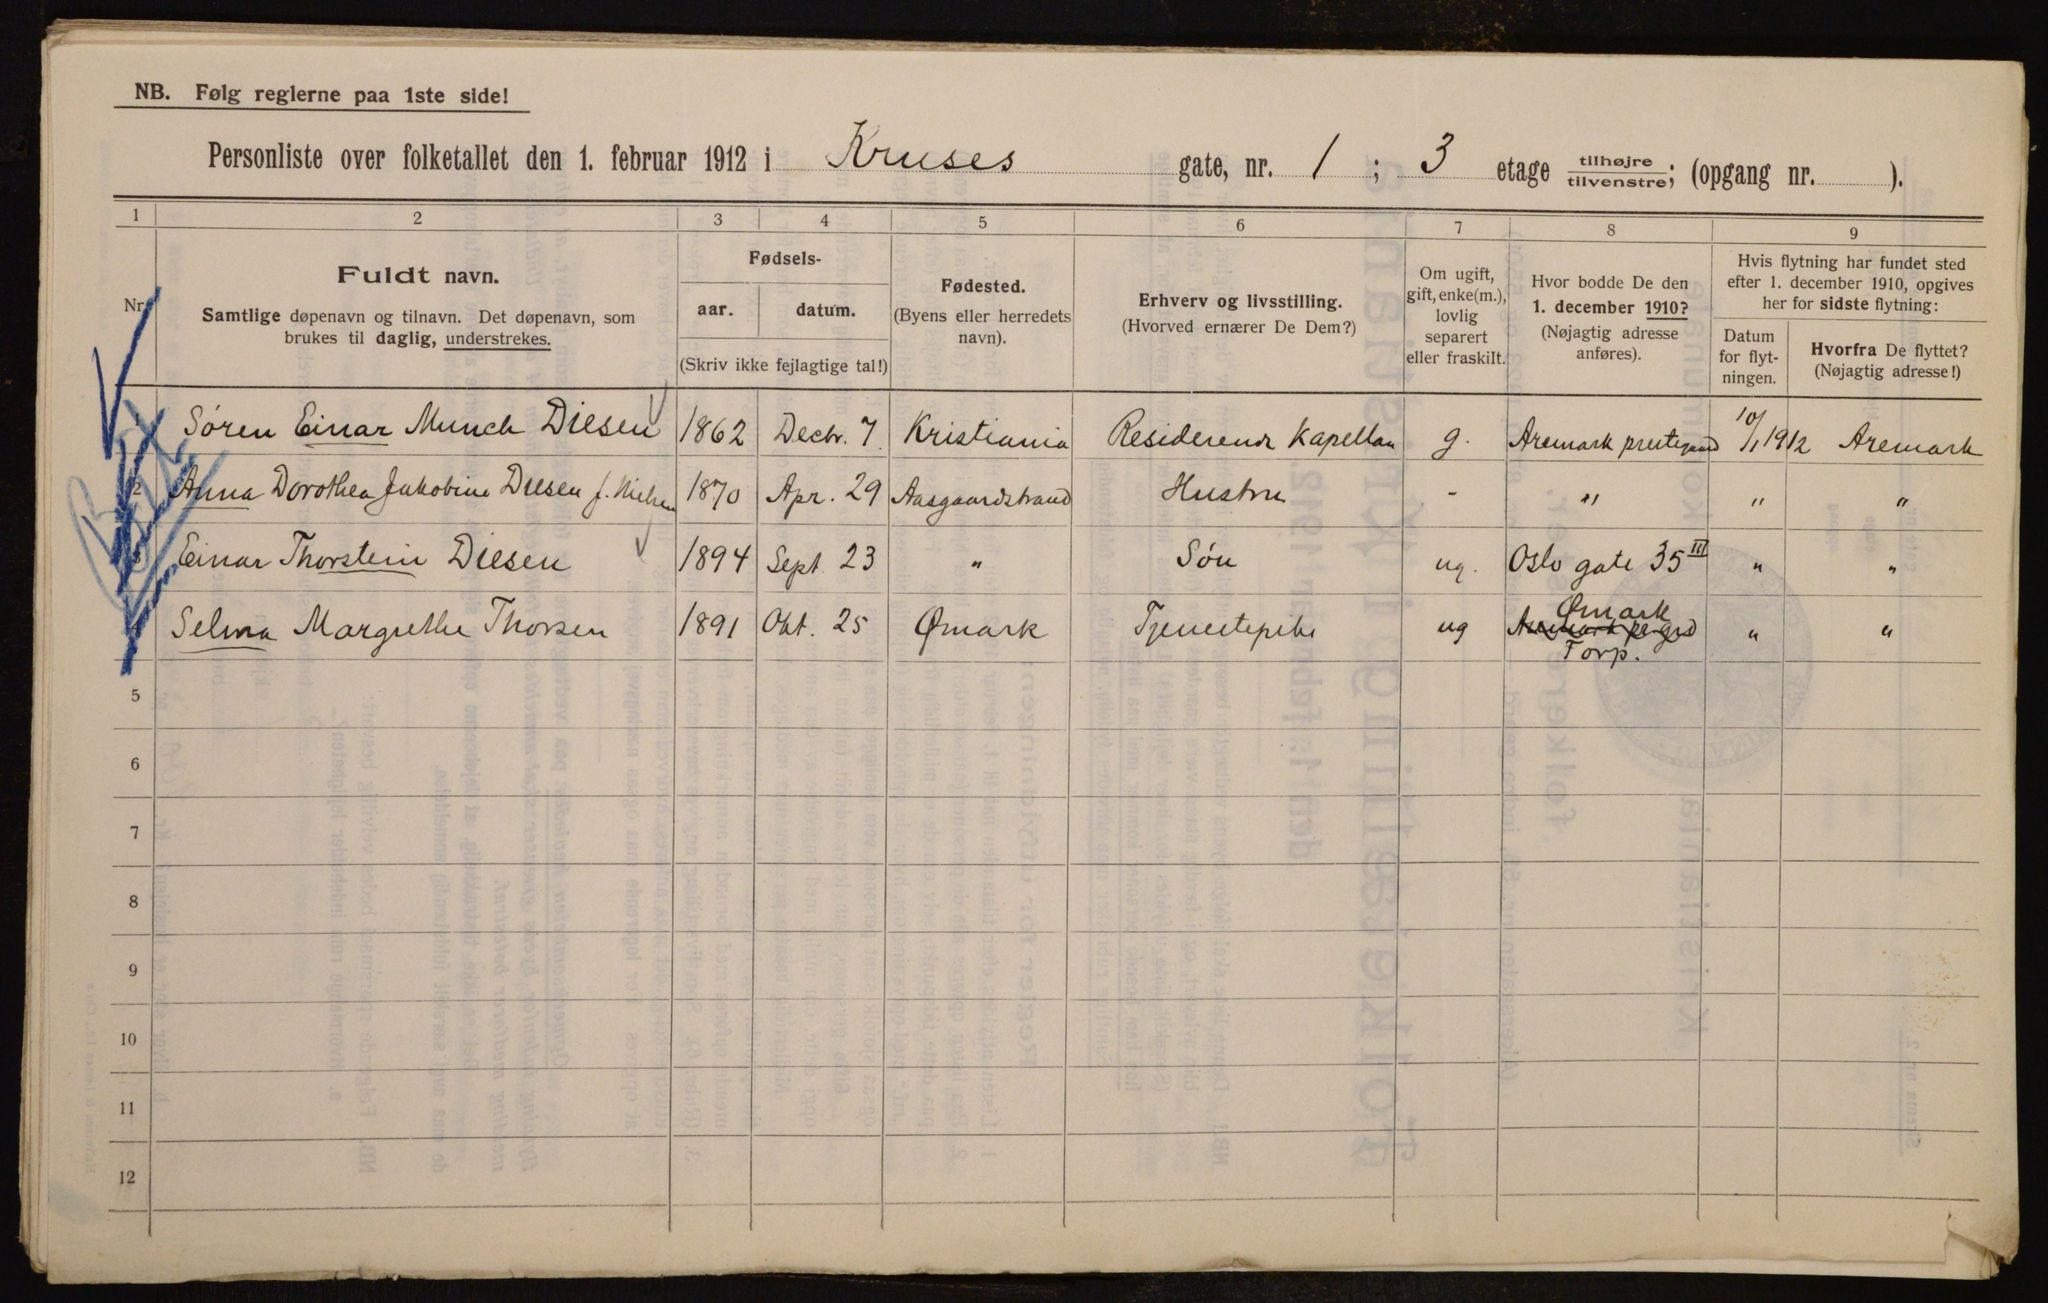 NB. Følg reglerne paa 1ste side!
Personliste over folketallet den 1. februar 1912 i Kruses gate, nr. 1 ; 3 etage tilhøjre/tilvenstre; (opgang nr. ).
1 2 3 4 5 6 7 8 9
Nr.
Fuldt navn.
Samtlige døpenavn og tilnavn. Det døpenavn, som
brukes til daglig, understrekes.
Fødsels-
aar. datum.
(Skriv ikke fejlagtige tal!)
Fødested.
(Byens eller herredets
navn).
Erhverv og livsstilling.
(Hvorved ernærer De Dem?)
Om ugift,
gift, enke(m.),
lovlig
separert
eller fraskilt.
Hvor bodde De den
1. december 1910?
(Nøjagtig adresse
anføres).
Hvis flytning har fundet sted
efter 1. december 1910, opgives
her for sidste flytning:
Datum
for flyt-
ningen.
Hvorfra De flyttet?
(Nøjagtig adresse!)
1 Søren Einar Munch Diesen 1862 Decbr. 7 Kristiania Residerende Kapellan g. Aremark prestegaard 10/1 1912 Aremark
2 Anna Dorothea Jakobine Diesen f. Nielsen 1870 Apr. 29 Aasgaardstrand Hustru - " " "
3 Einar Thorstein Diesen 1894 Sept. 23 " Søn ug. Oslo gate 35 III " "
4 Selma Margrethe Thorsen 1891 Okt. 25 Ømark Tjenestepike ug Ømark " "
Aremark
Torp.
5
6
7
8
9
10
11
12